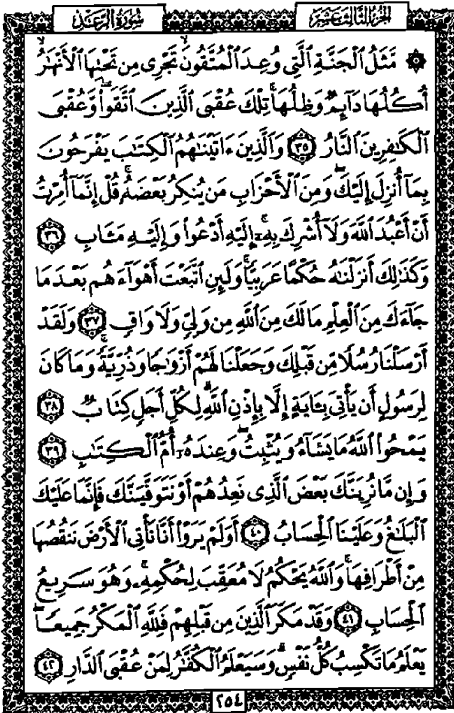 الجزء الثالث عشر
سورة الرعد
۞ مَّثَلُ الْجَنَّةِ الَّتِي وُعِدَ الْمُتَّقُونَ تَجْرِي مِن تَحْتِهَا الْأَنْهَٰرُ
أُكُلُهَا دَآئِمٌ وَظِلُّهَا تِلْكَ عُقْبَى الَّذِينَ اتَّقَوا وَّعُقْبَى
الْكَٰفِرِينَ النَّارُ ٣٥ وَالَّذِينَ ءَاتَيْنَٰهُمُ الْكِتَٰبَ يَفْرَحُونَ
بِمَآ أُنزِلَ إِلَيْكَ وَمِنَ الْأَحْزَابِ مَن يُنكِرُ بَعْضَهُۥ قُلْ إِنَّمَآ أُمِرْتُ
أَنْ أَعْبُدَ اللَّهَ وَلَآ أُشْرِكَ بِهِۦٓ إِلَيْهِ أَدْعُوا وَإِلَيْهِ مَـَٔابِ ٣٦
وَكَذَٰلِكَ أَنزَلْنَٰهُ حُكْمًا عَرَبِيًّا وَلَئِنِ اتَّبَعْتَ أَهْوَآءَهُم بَعْدَمَا
جَآءَكَ مِنَ الْعِلْمِ مَا لَكَ مِنَ اللَّهِ مِن وَلِيٍّ وَلَا وَاقٍ ٣٧ وَلَقَدْ
أَرْسَلْنَا رُسُلًا مِّن قَبْلِكَ وَجَعَلْنَا لَهُمْ أَزْوَٰجًا وَذُرِّيَّةً وَمَا كَانَ
لِرَسُولٍ أَن يَأْتِيَ بِـَٔايَةٍ إِلَّا بِإِذْنِ اللَّهِ لِكُلِّ أَجَلٍ كِتَابٌ ٣٨
يَمْحُوا اللَّهُ مَا يَشَآءُ وَيُثْبِتُ وَعِندَهُۥٓ أُمُّ الْكِتَٰبِ ٣٩
وَإِن مَّا نُرِيَنَّكَ بَعْضَ الَّذِي نَعِدُهُمْ أَوْ نَتَوَفَّيَنَّكَ فَإِنَّمَا عَلَيْكَ
الْبَلَٰغُ وَعَلَيْنَا الْحِسَابُ ٤٠ أَوَلَمْ يَرَوْا أَنَّا نَأْتِي الْأَرْضَ نَنقُصُهَا
مِنْ أَطْرَافِهَا وَاللَّهُ يَحْكُمُ لَا مُعَقِّبَ لِحُكْمِهِۦ وَهُوَ سَرِيعُ
الْحِسَابِ ٤١ وَقَدْ مَكَرَ الَّذِينَ مِن قَبْلِهِمْ فَلِلَّهِ الْمَكْرُ جَمِيعًا
يَعْلَمُ مَا تَكْسِبُ كُلُّ نَفْسٍ وَسَيَعْلَمُ الْكُفَّٰرُ لِمَنْ عُقْبَى الدَّارِ ٤٢
٢٥٤